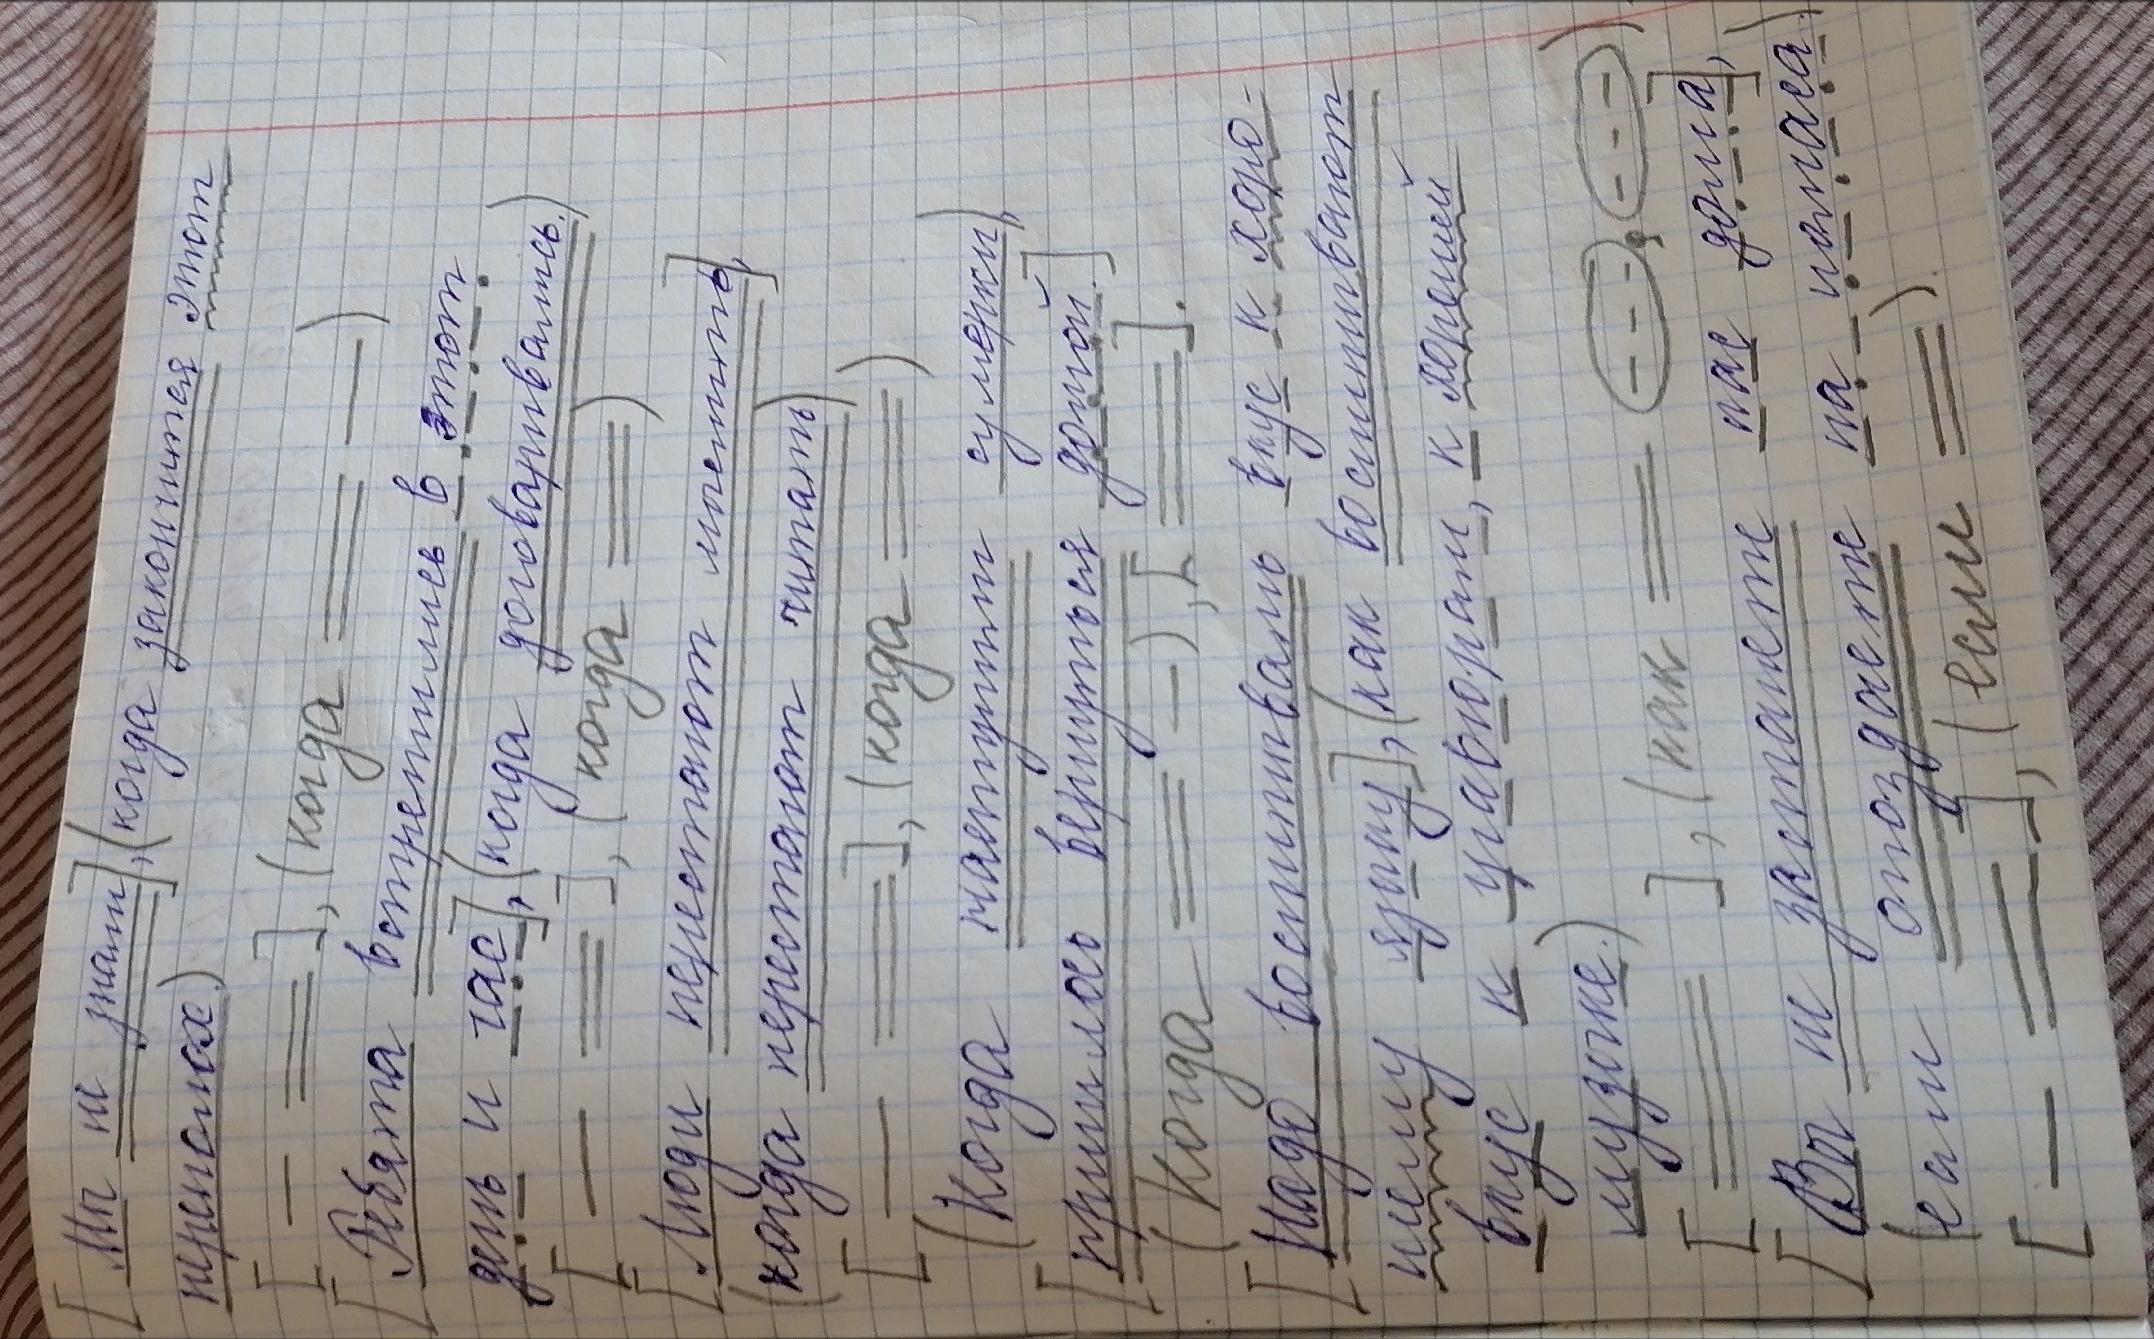 [Мы не знаем],(когда закончится этот
переполох)
[— ═], (когда ═ —)
[Ребята встретились в этот
день и час],(когда договаривались.)
[— ═], (когда ═)
[Люди перестают мыслить],
(когда перестают читать)
[— ═], (когда ═)
(Когда наступят сумерки),
[пришлось вернуться домой.]
(Когда ═ —), [═].
[Надо воспитывать вкус к хоро-
шему языку],(как воспитывают
вкус к гравюрам, к хорошей
музыке.)
[═], (как ═ ---, ---)
[Вы не застанете нас дома],
(если опоздаете на полчаса.)
[— ═], (если ═).